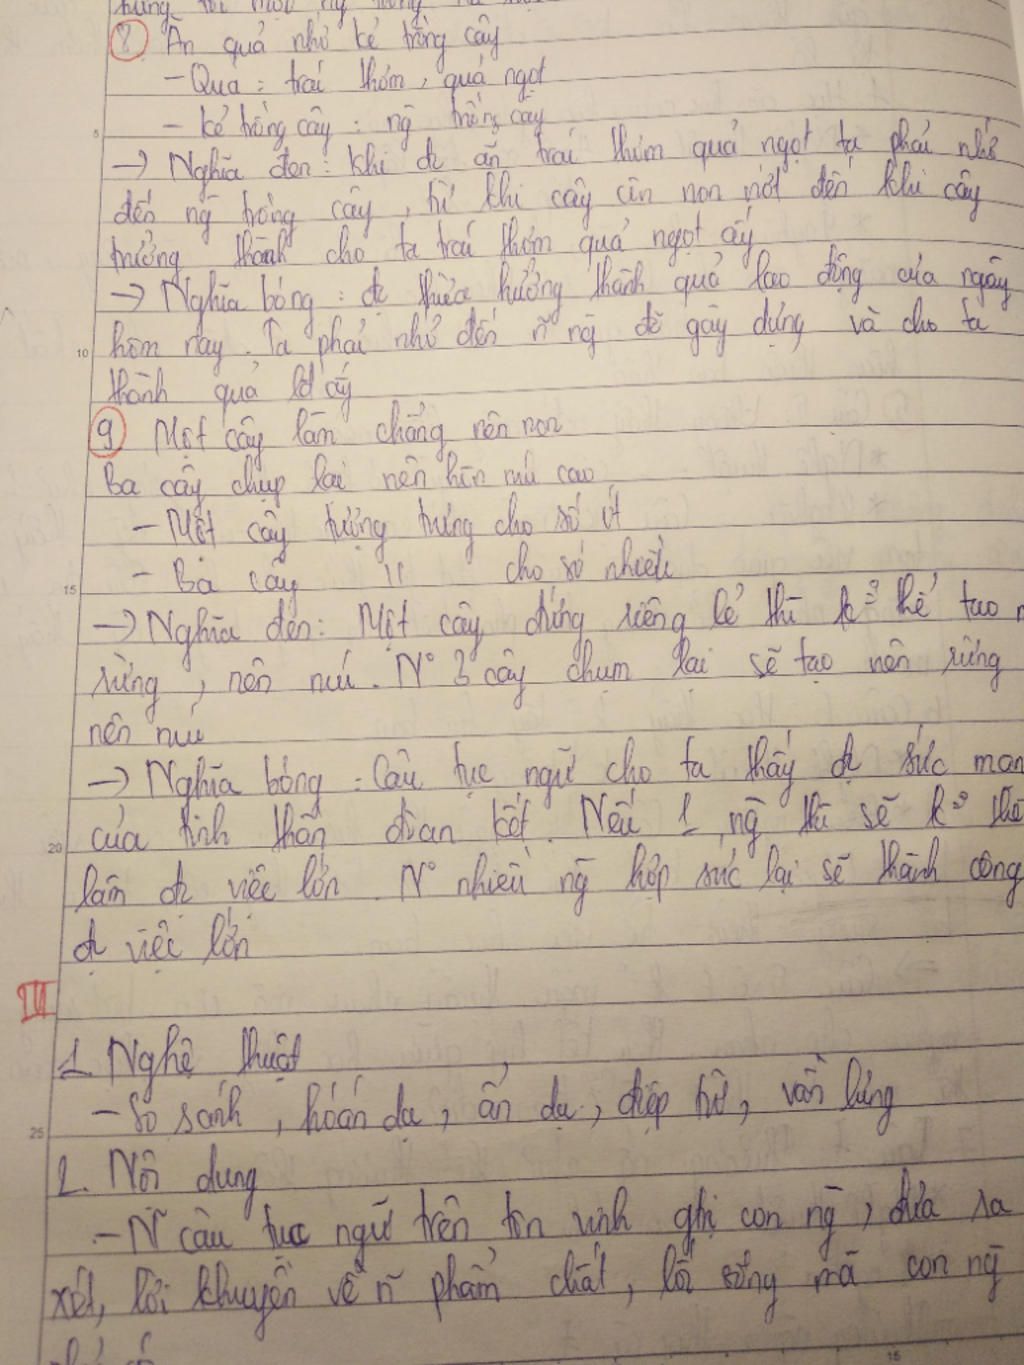 8 Ăn quả nhớ kẻ trồng cây
- Quả : trái thơm, quả ngọt
- kẻ trồng cây : ng̃ trồng cây
→ Nghĩa đen : khi đc ăn trái thơm quả ngọt ta phải nhớ
đến ng̃ trồng cây, từ khi cây còn non nớt đến khi cây
trưởng thành cho ta trái thơm quả ngọt ấy
→ Nghĩa bóng : đc thừa hưởng thành quả lao động của ngày
hôm nay. Ta phải nhớ đến ñ ng̃ đã gây dựng và cho ta
thành quả lđ ấy
9 Một cây làm chẳng nên non
Ba cây chụm lại nên hòn núi cao
- Một cây tượng trưng cho số ít
- Ba cây 11 cho số nhiều
→ Nghĩa đen : Một cây đứng riêng lẻ thì k° thể tạo
rừng, nên núi. N° 3 cây chụm lại sẽ tạo nên rừng
nên núi
→ Nghĩa bóng : Câu tục ngữ cho ta thấy đc sức mạn
của tinh thần đoàn kết. Nếu 1 ng̃ thì sẽ k° thể
làm đc việc lớn. N° nhiều ng̃ hợp sức lại sẽ thành công
đc việc lớn
III
1. Nghệ thuật
- So sánh, hoán dụ, ẩn dụ, điệp từ, vần lưng
2. Nội dung
- Ñ câu tục ngữ trên tôn vinh gtrị con ng̃, đưa ra
xét, lời khuyên về ñ phẩm chất, lối sống mà con ng̃